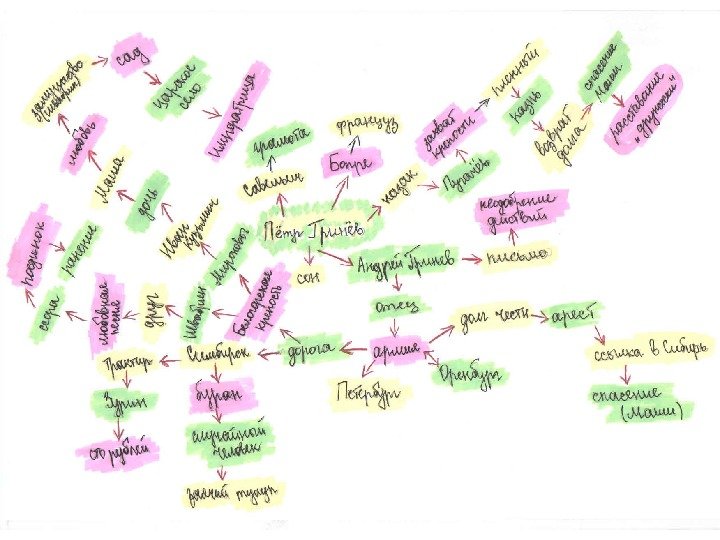 сад
Царское
село
Императрица
заступничество
любовь
Маша
дочь
Иван
Кузьмич
Миронов
Белогорская
крепость
Швабрин
друг
любовная
песня
ссора
поединок
ранение
грамота
Савельич
француз
Бопре
Пётр Гринёв
сон
казак
Пугачёв
захват
крепости
пленный
казнь
возврат
долга
спасение
Маши
расставание
"дружески"
неодобрение
действий
письмо
Андрей Гринев
отец
армия
Петербург
Оренбург
долг чести
арест
ссылка в Сибирь
спасение
(Маши)
дорога
Симбирск
трактир
Зурин
сто рублей
буран
случайный
человек
заячий тулуп